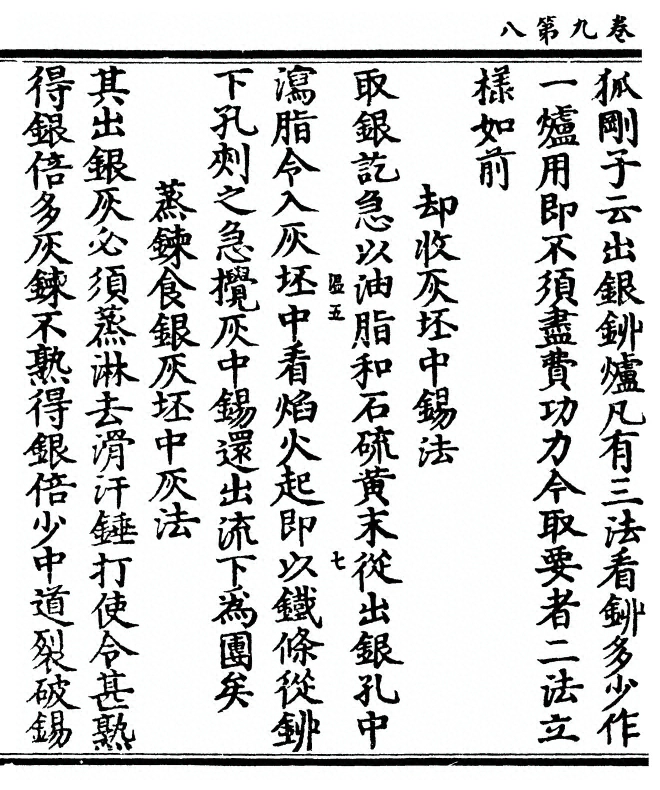 卷九第八
狐剛子云出銀鉚爐凡有三法看鉚多少作
一爐用即不須盡費功力今取要者二法立
樣如前
却收灰坯中錫法
取銀訖急以油脂和石硫黄末從出銀孔中
瀉脂令入灰坯中看焰火起即以鐵條從鉚
下孔刺之急攪灰中錫還出流下為團矣
蒸鍊食銀灰坯中灰法
其出銀灰必須蒸淋去滑汗錘打使令甚熟
得銀倍多灰鍊不熟得銀倍少中道裂破錫
温五
七